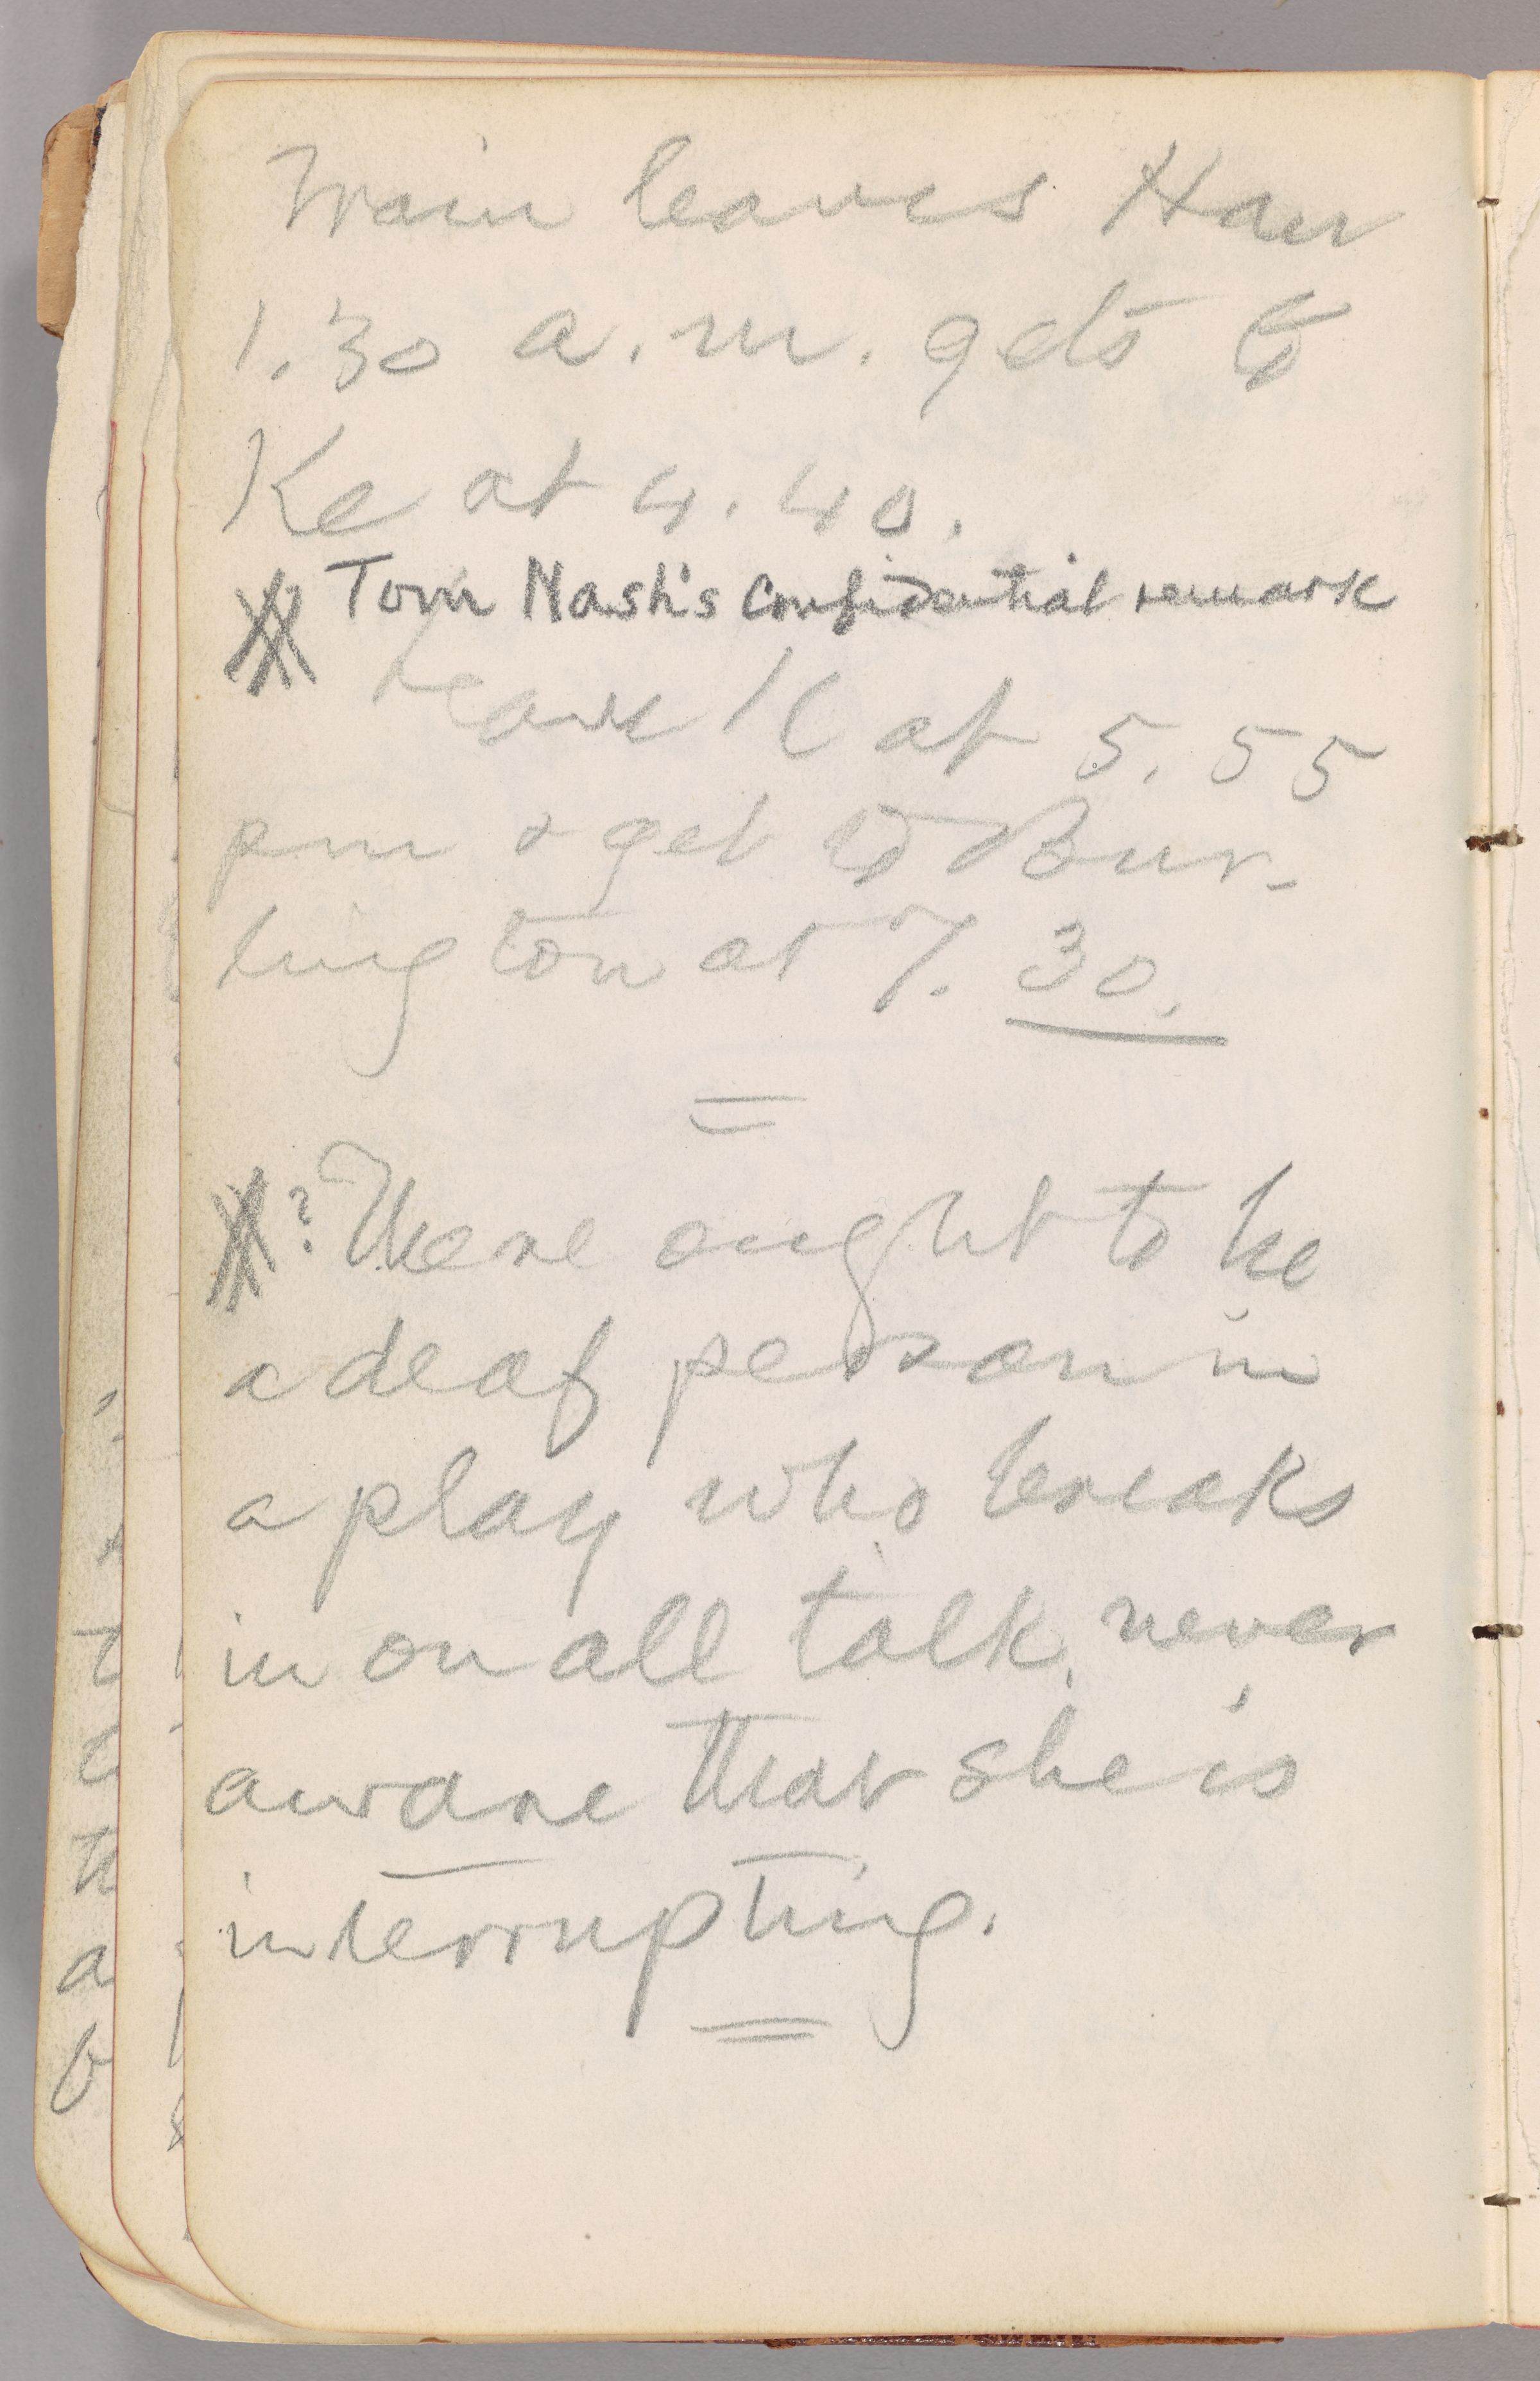 Train leaves Han
1.30 a.m. gets to
Ke at 4.40.
Tom Nash's confidential remark
Leave K at 5.55
pm & get to Bur-
lington at 7.30.
? There ought to be
a deaf person in
a play who breaks
in on all talk, never
aware that she is
interrupting.